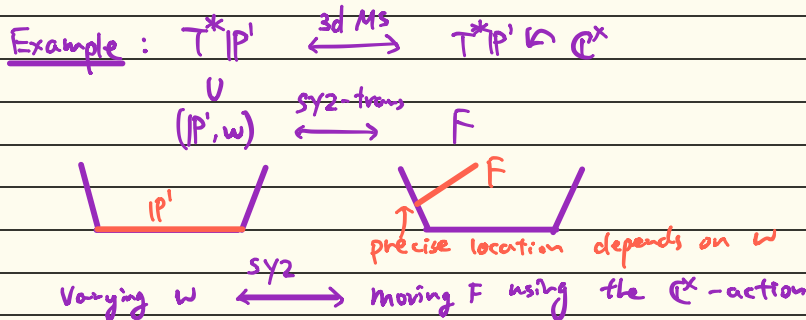 Example : T*ℙ¹ ⟷ 3d MS T*ℙ¹ ↶ ℂ^×
∪
(ℙ¹, w) ⟷ SYZ-trans F
ℙ¹ F
precise location depends on w
Varying w ⟷ SYZ moving F using the ℂ^×-action